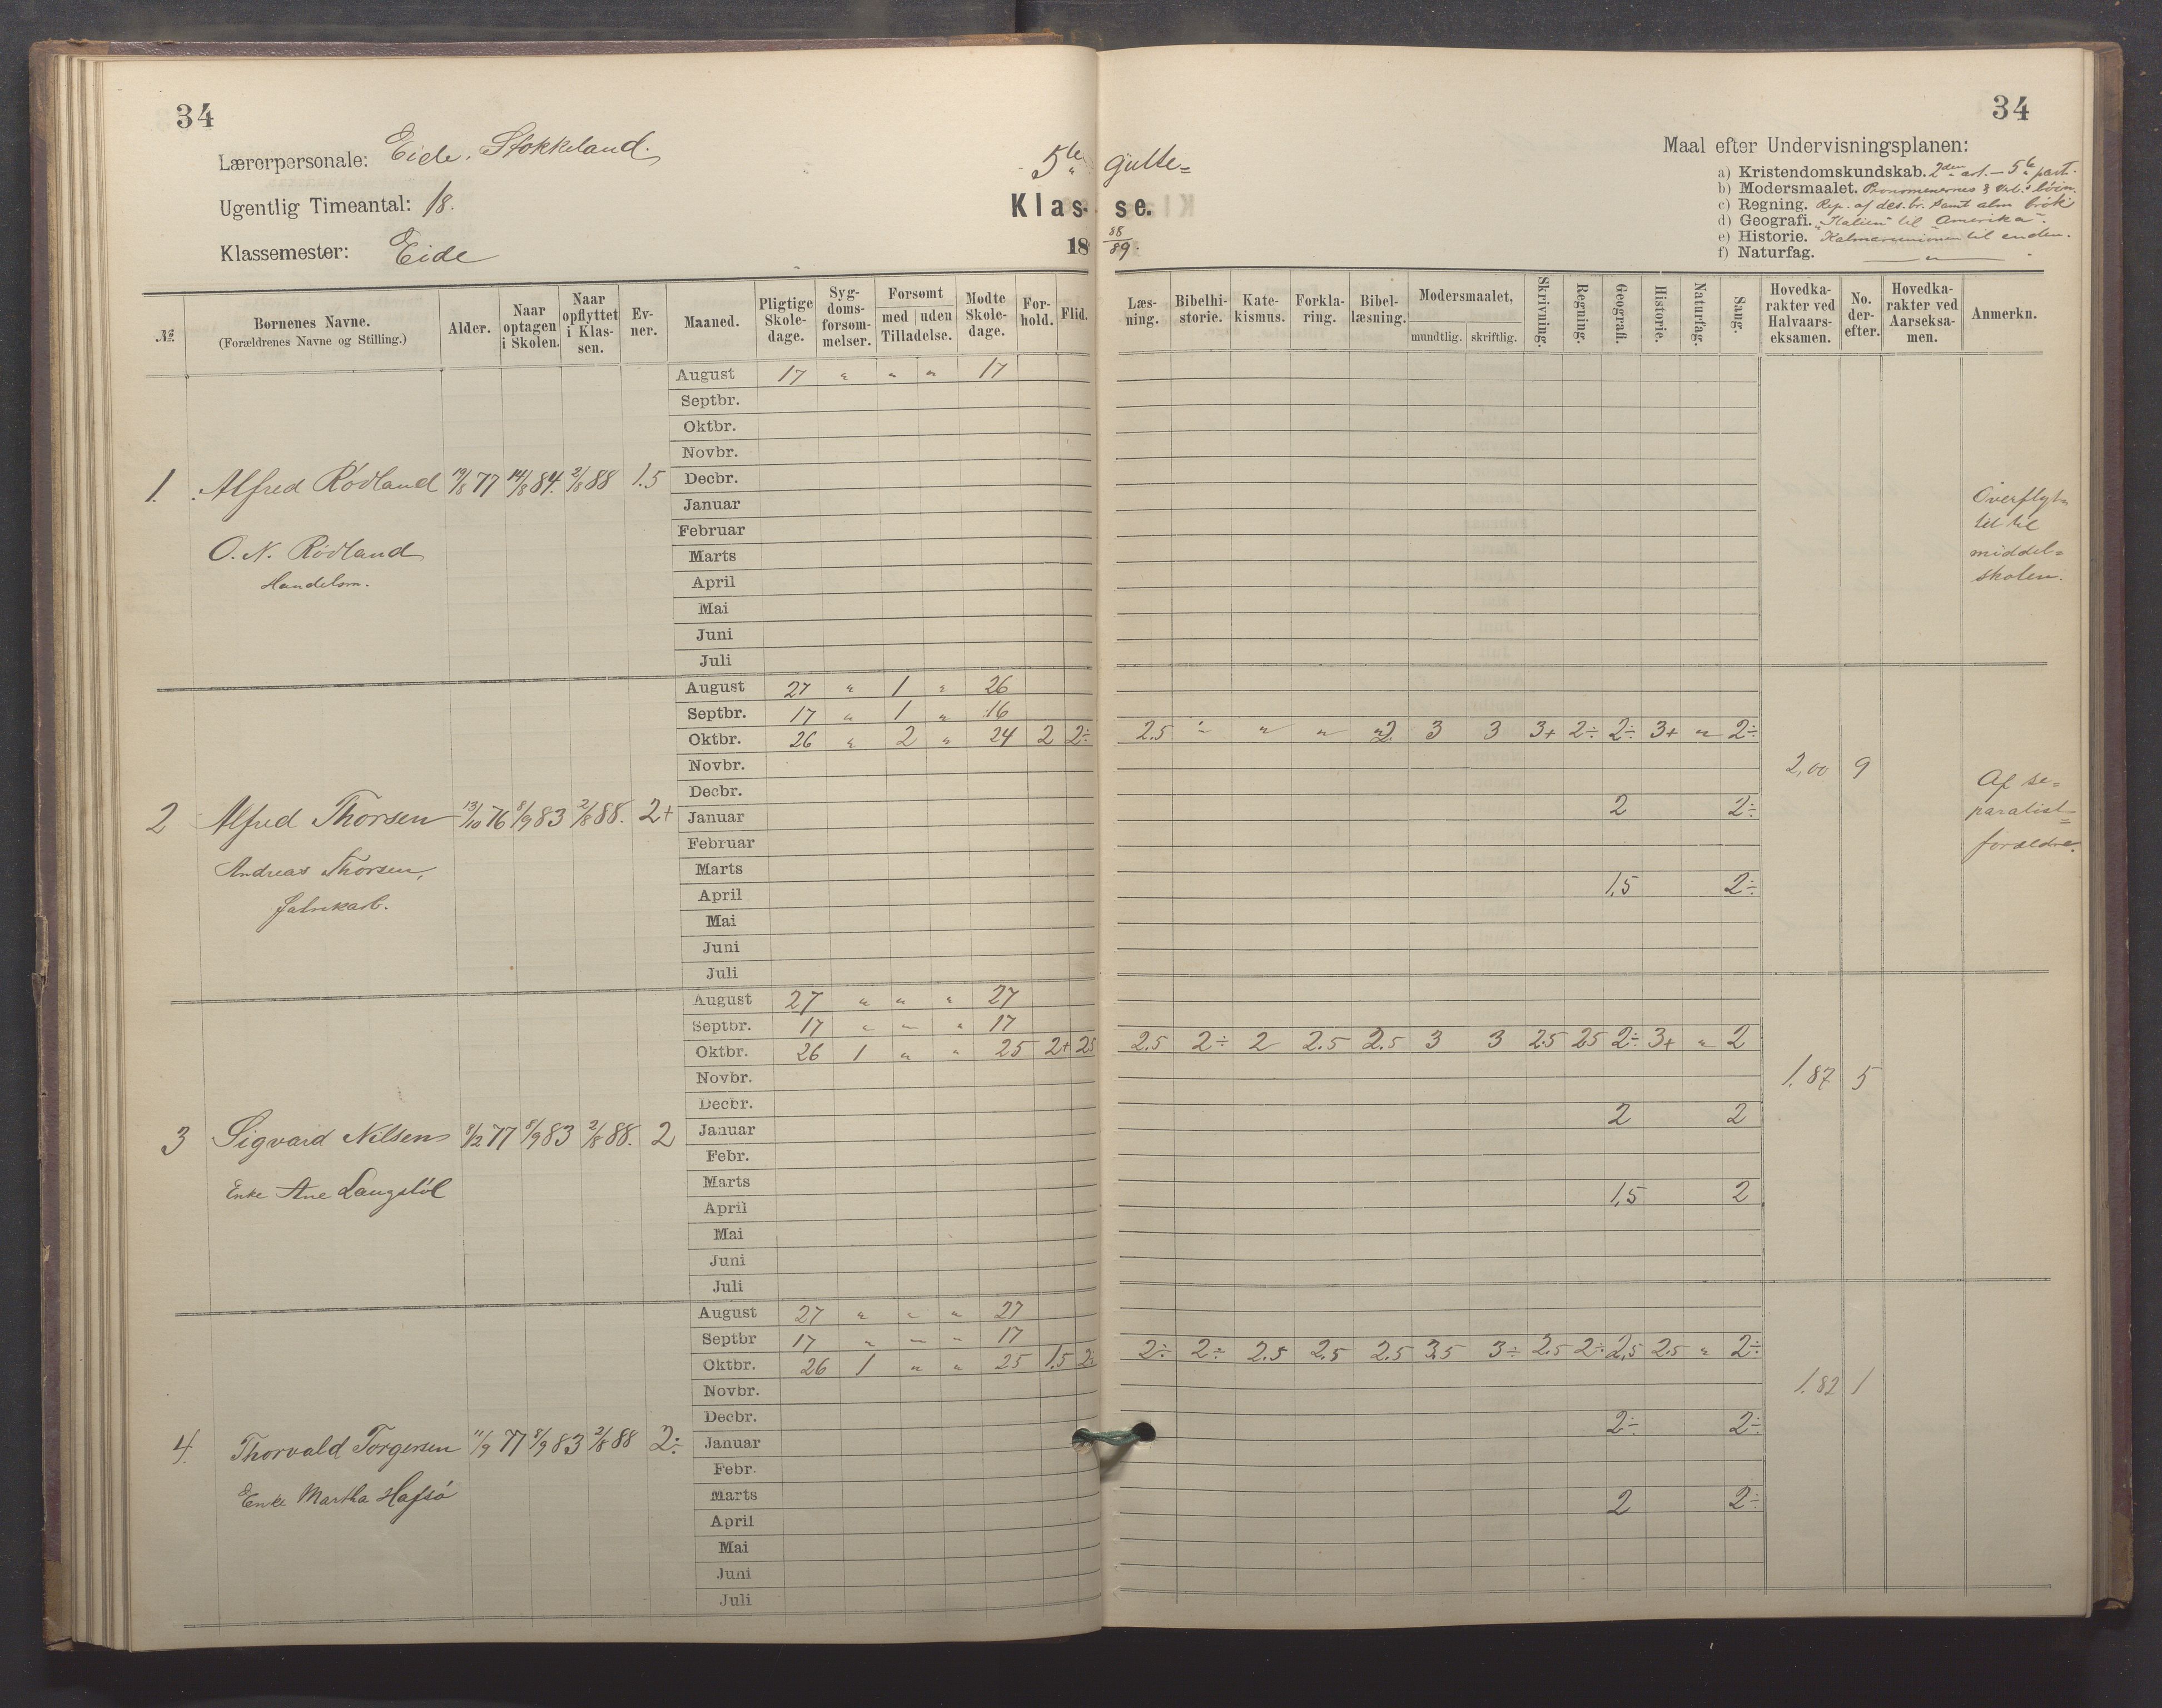 34
34
Lærerpersonale: Eide. Stokkeland.
Ugentlig Timeantal: 18.
Klassemester: Eide
5te Gutte=
Klas- se.
18 88/89.
Maal efter Undervisningsplanen:
a) Kristendomskundskab. 2den art. – 5te part.
b) Modersmaalet.
c) Regning. Rep. af des.br. samt alm brök
d) Geografi. "Italien" til "Amerika".
e) Historie. Kalmarunionen til enden.
f) Naturfag. „
№ Børnenes Navne. (Forældrenes Navne og Stilling.) Alder. Naar optagen i Skolen. Naar opflyttet i Klassen. Evner. Maaned. Pligtige Skoledage. Sygdomsforsømmelser. Forsømt med uden Tilladelse. Mødte Skoledage. Forhold. Flid. Læsning. Bibelhistorie. Katekismus. Forklaring. Bibellæsning. Modersmaalet, mundtlig. skriftlig. Skrivning. Regning. Geografi. Historie. Naturfag. Sang. Hovedkarakter ved Halvaarseksamen. No. derefter. Hovedkarakter ved Aarseksamen. Anmerkn.
August 17 „ „ „ 17
Septbr.
Oktbr.
Novbr.
1. Alfred Rödland 19/8 77 14/8 84. 2/8 88 1.5 Decbr.
Januar
Februar
O. N. Rödland Marts
Handelsm. April
Mai
Juni
Juli
Overflyt=
tet til
middel=
skolen.
August 27 „ 1 „ 26
Septbr. 17 „ 1 „ 16
Oktbr. 26 „ 2 „ 24 2 2÷ 2.5 „ „ „ 2 3 3 3+ 2÷ 2÷ 3+ „ 2÷
Novbr. 2,00 9
Decbr.
2 Alfred Thorsen 13/10 76 8/9 83 2/8 88. 2+ Januar 2 2÷
Februar
Andreas Thorsen, Marts
Fabrikarb. April 1,5 2÷
Mai
Juni
Juli
Af se=
paratist=
forældre.
August 27 „ „ „ 27
Septbr. 17 „ „ „ 17
Oktbr. 26 1 „ „ 25 2+ 2.5 2.5 2÷ 2 2.5 2.5 3 3 2.5 2.5 2÷ 3+ „ 2
Novbr. 1,87 5
Decbr.
3 Sigvard Nilsen 8/12 77 8/9 83 2/8 88. 2 Januar 2 2
Febr.
Enke Ane Laugstöl Marts
April 1,5 2
Mai
Juni
Juli
August 27 „ „ „ 27
Septbr 17 „ „ „ 17
Oktbr. 26 1 „ „ 25 1.5 2÷ 2÷ 2÷ 2.5 2.5 2.5 3.5 3÷ 2.5 2÷ 2.5 2.5 „ 2÷
Novbr. 1.82 1
Decbr.
4. Thorvald Torgersen 11/9 77 8/9 83 2/8 88 2÷ Januar 2÷ 2÷
Febr.
Enke Martha Hafsö Marts 2 2÷
April
Mai
Juni
Juli